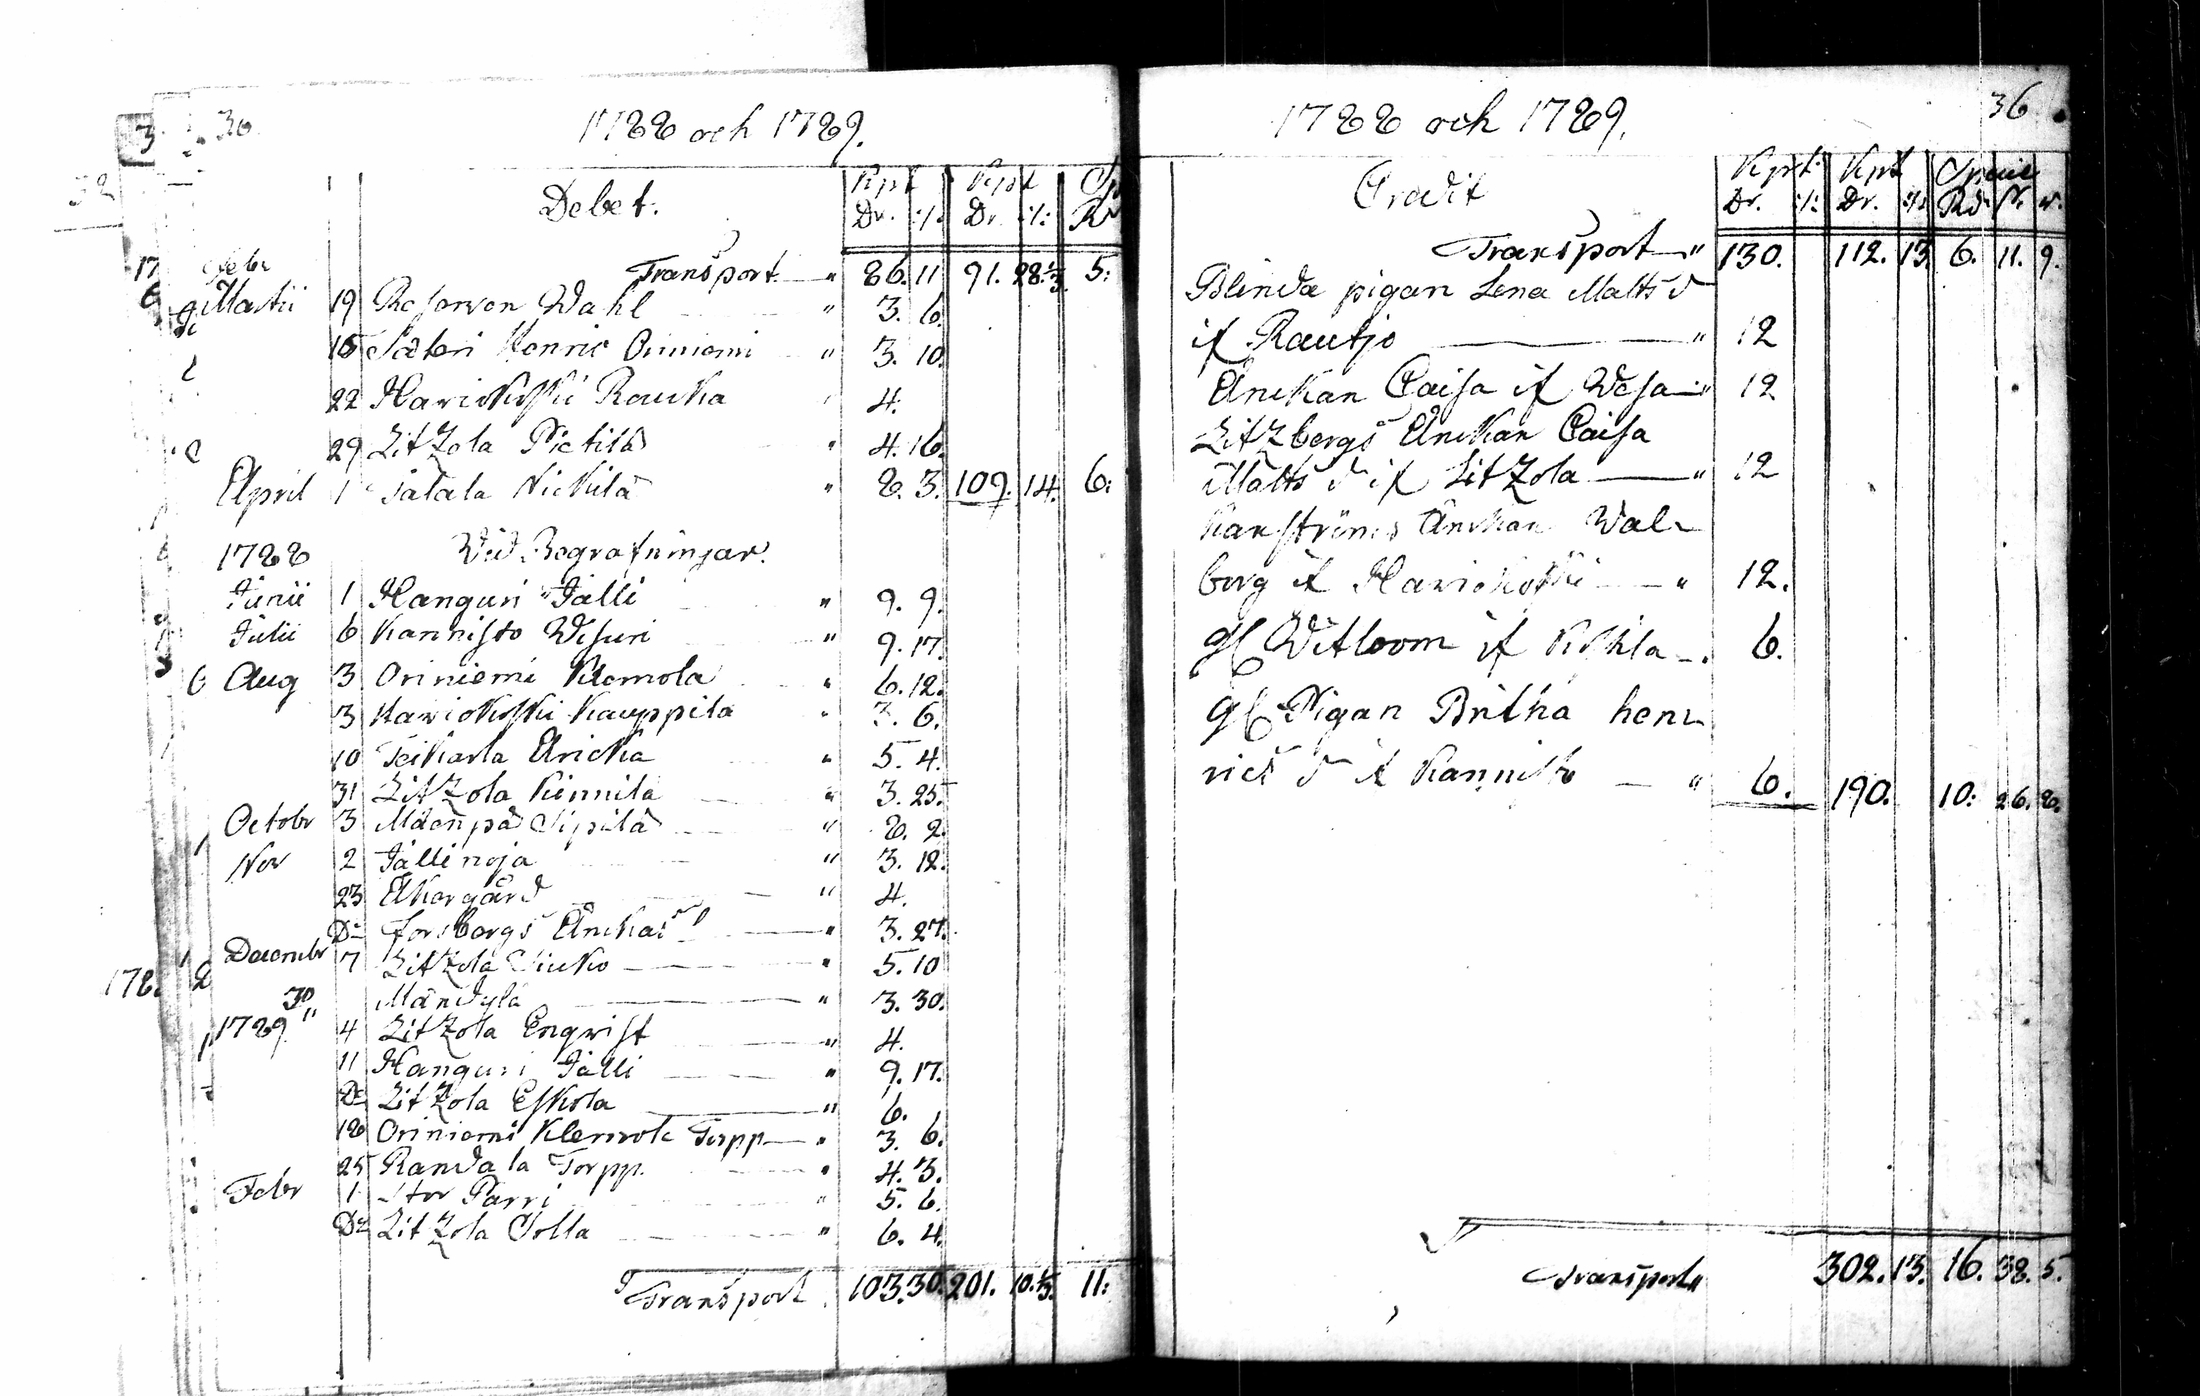 36.
1788 och 1789.
Debet.
Kpt Kpt Sp
Dr. :/: Dr. :/: Rd
Febr Transport " 86. 11 91. 28 1/3 5:
Martii 19 Reserven Wahl " 3. 6.
15 Säteri Henric Oriniemi " 3. 10.
22 Hariokoski Rauka " 4.
29 Litzola Pietilä " 4. 16.
April 1 Talala Nickilä " 8. 3. 109. 14. 6:
1788 Wid Begrafningar.
Junii 1 Hanguri Jälli " 9. 9.
Julii 6 Kannisto Wesuri " 9. 17.
Aug 3 Oriniemi Klemola " 6. 12.
3 Hariokoski Kauppila " 3. 6.
10 Teikarla Ericka " 5. 4.
31 Litzola Kinnila " 3. 25.
Octobr 3 Mäenpää Sipilä " 8. 2.
Nov 2 Jällinoja " 3. 12.
23 Åkergård " 4.
Do forsbergs Enkas " 3. 27.
Decembr 7 Litzola Siuko " 5. 10
Mändylä " 3. 30.
1789 4 Litzola Engvist " 4.
11 Hanguri Jälli " 9. 17.
Do Litzola Eskola " 6.
18 Oriniemi Klemola Torpp " 3. 6.
25 Randala Torpp. " 4. 3.
Febr 1 Stor Parri " 5. 6.
Do Litzola Solla " 6. 4.
Transport 103. 30. 201. 10. 1/3. 11:
36
1788 och 1789.
Credit
Kpt: Kpt Specie
Dr. :/: Dr. :/: Rd. s. r.
Transport " 130. 112. 13. 6. 11. 9.
Blinda pigan Lena Matts d
if Rautjo " 12
Enkan Caisa if Wesa " 12
Litzbergs Enkan Caisa
Matts d if Litzola " 12
Kanströms Enkan Wal-
borg if Hariokoski " 12.
gl Witloom if Kihla . 6.
gl Pigan Britha hen-
rics d if Kannisto " 6. 190. 10: 26. 8.
Transport " 302. 13. 16. 38. 5.